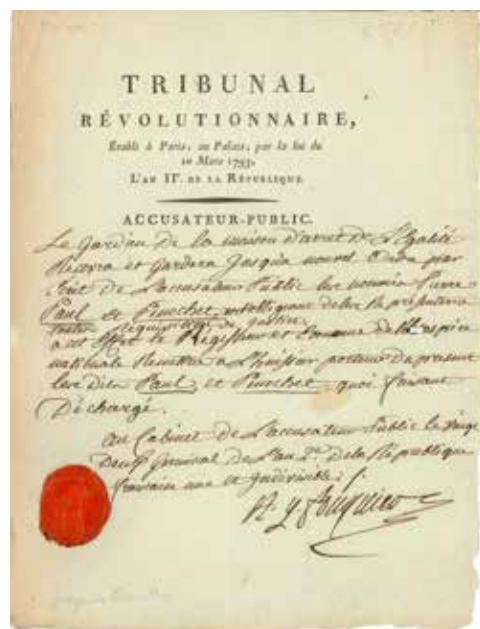 TRIBUNAL
RÉVOLUTIONNAIRE,
Établi à Paris, au Palais, par la loi du
10 Mars 1793,
L'AN IIe. DE LA RÉPUBLIQUE.
ACCUSATEUR-PUBLIC.
Le gardien de la maison d'arret de L'Egalité
Recevra et gardera jusqua nouvel ordre par
Ecrit de L'accusateur Public les nommés
Paul et Pinochet, de les Representer a
toutes requisitions de justice
a cet effet le Regisseur et de L'hospice
nationale Remettra a L'huissier porteur du present
les dits Paul et Pinochet quoi faisant
Déchargé.
au Cabinet de L'accusateur Public le vingt
Deux Germinal de L'an 2e de la République
francaise une et Indivisible.
A. Q. Fouquier